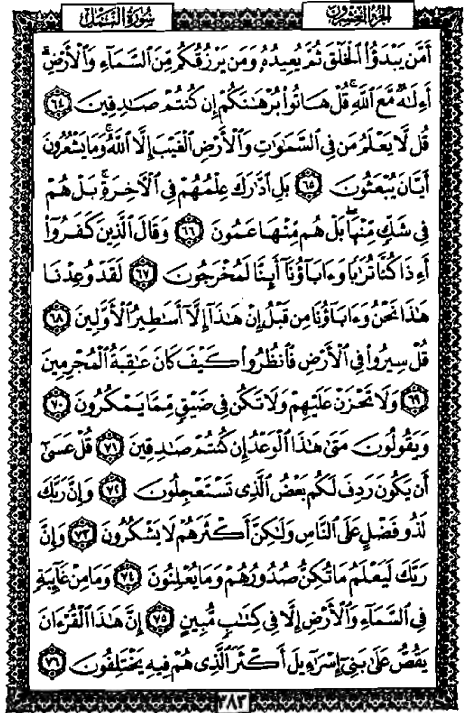 الجزء العشرون
سورة النمل
أَمَّن يَبْدَؤُا۟ ٱلْخَلْقَ ثُمَّ يُعِيدُهُۥ وَمَن يَرْزُقُكُم مِّنَ ٱلسَّمَآءِ وَٱلْأَرْضِ ۗ
أَءِلَٰهٌ مَّعَ ٱللَّهِ ۚ قُلْ هَاتُوا۟ بُرْهَٰنَكُمْ إِن كُنتُمْ صَٰدِقِينَ ٦٤
قُل لَّا يَعْلَمُ مَن فِى ٱلسَّمَٰوَٰتِ وَٱلْأَرْضِ ٱلْغَيْبَ إِلَّا ٱللَّهُ ۚ وَمَا يَشْعُرُونَ
أَيَّانَ يُبْعَثُونَ ٦٥ بَلِ ٱدَّٰرَكَ عِلْمُهُمْ فِى ٱلْـَٔاخِرَةِ ۚ بَلْ هُمْ
فِى شَكٍّ مِّنْهَا ۖ بَلْ هُم مِّنْهَا عَمُونَ ٦٦ وَقَالَ ٱلَّذِينَ كَفَرُوٓا۟
أَءِذَا كُنَّا تُرَٰبًا وَءَابَآؤُنَآ أَئِنَّا لَمُخْرَجُونَ ٦٧ لَقَدْ وُعِدْنَا
هَٰذَا نَحْنُ وَءَابَآؤُنَا مِن قَبْلُ إِنْ هَٰذَآ إِلَّآ أَسَٰطِيرُ ٱلْأَوَّلِينَ ٦٨
قُلْ سِيرُوا۟ فِى ٱلْأَرْضِ فَٱنظُرُوا۟ كَيْفَ كَانَ عَٰقِبَةُ ٱلْمُجْرِمِينَ
٦٩ وَلَا تَحْزَنْ عَلَيْهِمْ وَلَا تَكُن فِى ضَيْقٍ مِّمَّا يَمْكُرُونَ ٧٠
وَيَقُولُونَ مَتَىٰ هَٰذَا ٱلْوَعْدُ إِن كُنتُمْ صَٰدِقِينَ ٧١ قُلْ عَسَىٰٓ
أَن يَكُونَ رَدِفَ لَكُم بَعْضُ ٱلَّذِى تَسْتَعْجِلُونَ ٧٢ وَإِنَّ رَبَّكَ
لَذُو فَضْلٍ عَلَى ٱلنَّاسِ وَلَٰكِنَّ أَكْثَرَهُمْ لَا يَشْكُرُونَ ٧٣ وَإِنَّ
رَبَّكَ لَيَعْلَمُ مَا تُكِنُّ صُدُورُهُمْ وَمَا يُعْلِنُونَ ٧٤ وَمَا مِنْ غَآئِبَةٍ
فِى ٱلسَّمَآءِ وَٱلْأَرْضِ إِلَّا فِى كِتَٰبٍ مُّبِينٍ ٧٥ إِنَّ هَٰذَا ٱلْقُرْءَانَ
يَقُصُّ عَلَىٰ بَنِىٓ إِسْرَٰٓءِيلَ أَكْثَرَ ٱلَّذِى هُمْ فِيهِ يَخْتَلِفُونَ ٧٦
٣٨٣